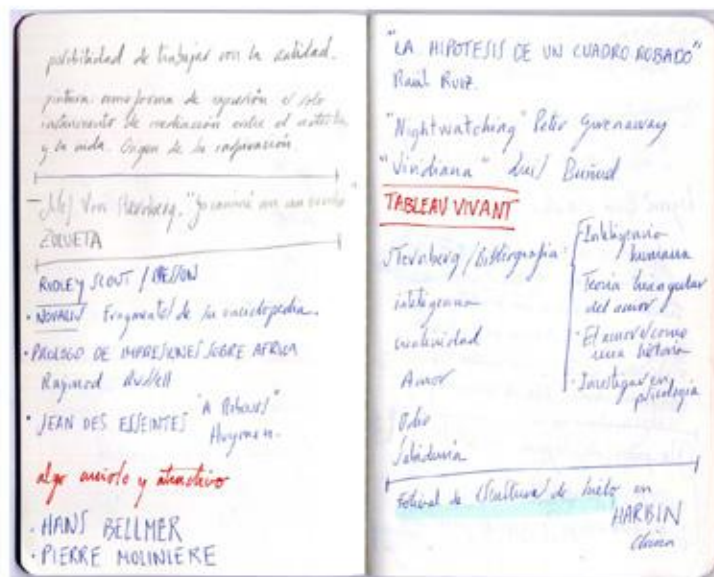 posibilidad de trabajar con la realidad.
pintura como forma de expresión el solo
instrumento de mediación entre el artista
y la vida. Origen de la inspiración.
Von Sternberg. "Yo caminé en un
ZULUETA
RIDLEY SCOUT / BESSON
· NOVALIS Fragmentos de su enciclopedia.
· PROLOGO DE IMPRESIONES SOBRE AFRICA
Raymod Russell
· JEAN DES ESSEINTES "A Rebours"
Huysmen.
algo and atractivo
· HANS BELLMER
· PIERRE MOLINIERE
"LA HIPOTESIS DE UN CUADRO ROBADO"
Raúl Ruiz.
"Nightwatching" Peter Greenaway
"Viridiana" Luis Buñuel
TABLEAU VIVANT
Sternberg / Bibliografia:
inteligencia
creatividad
Amor
Odio
Sabiduria
- Inteligencia
humana
Teoria triangular
del amor
· El amor como
una historia
· Investigar en
psicologia
Festival de Escultura de hielo en
HARBIN
China